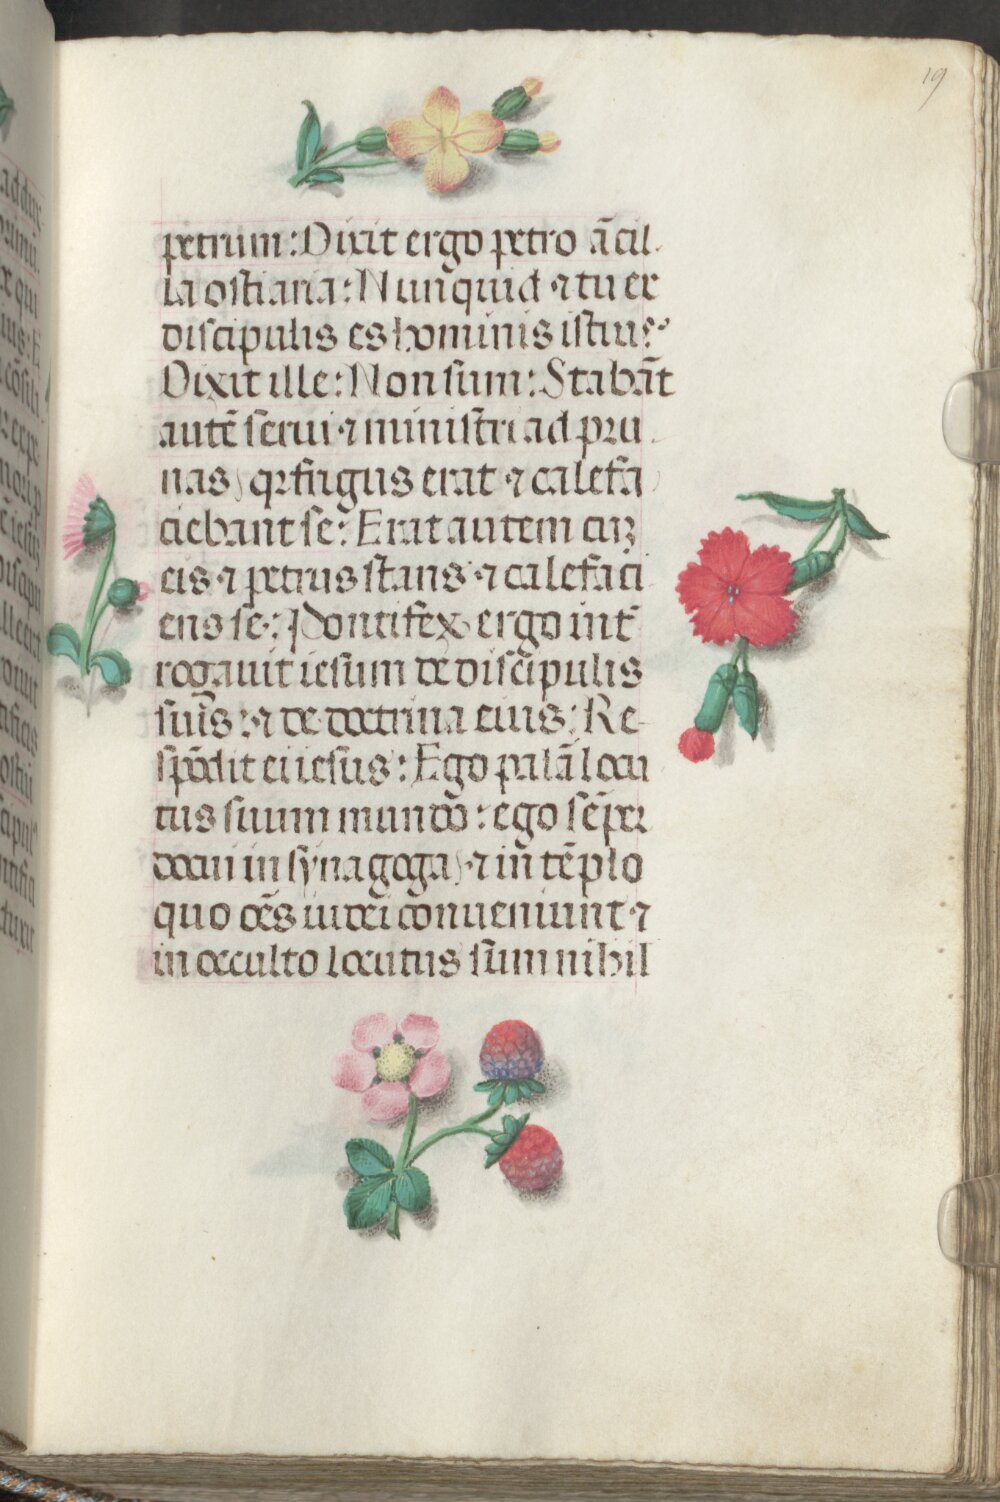 19
petrum: Dixit ergo petro ācil
la ostiaria: Nunquid ⁊ tu ex
discipulis es hominis istius?
Dixit ille: Non sum: Stabāt
autē serui ⁊ ministri ad pru
nas, qr frigus erat ⁊ calefa
ciebant se: Erat autem cuz
eis ⁊ petrus stans ⁊ calefaci
ens se: Pontifex ergo int̄
rogauit iesum de discipulis
suis: ⁊ de doctrina eius: Re
spōdit ei iesus: Ego palā locu
tus suum mundo: ego sēper
docui in synagoga, ⁊ in tēplo
quo oēs iudei conueniunt ⁊
in occulto locutus sum nihil